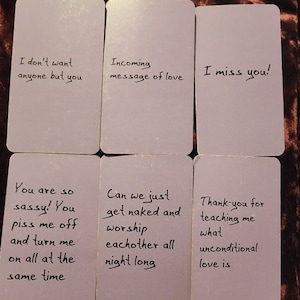 I don't want
anyone but you
Incoming
message of love
I miss you!
You are so
sassy! You
piss me off
and turn me
on all at the
same time
Can we just
get naked and
worship
eachother all
night long
Thank-you for
teaching me
what
unconditional
love is